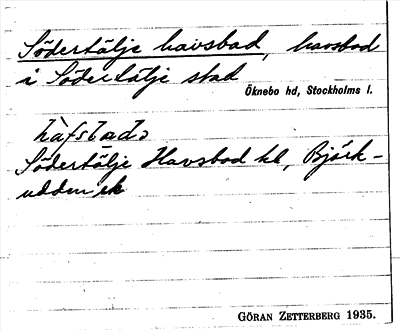 Södertälje havsbad, havsbad
i Södertälje stad
Öknebo hd, Stockholms l.
Södertälje Havsbad kl, Björk-
udden ek
GÖRAN ZETTERBERG 1935.